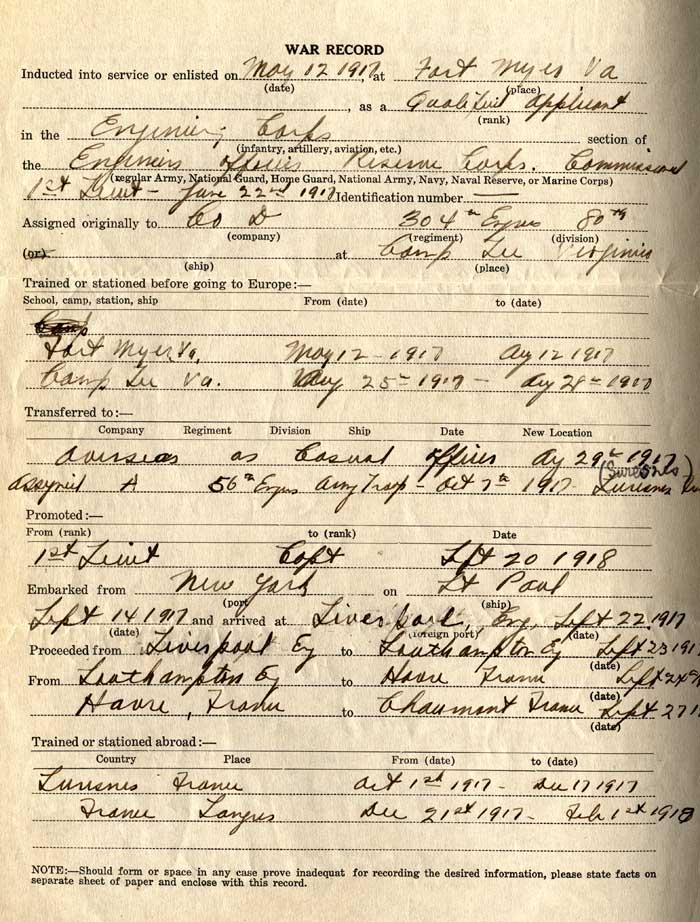 WAR RECORD
Inducted into service or enlisted on May 12 1917, at Fort Myer Va
(date) (place)
, as a Qualified applicant
(rank)
in the Engineer Corps section of
(infantry, artillery, aviation, etc.)
the Engineers officers Reserve Corps. Commissioned
(regular Army, National Guard, Home Guard, National Army, Navy, Naval Reserve, or Marine Corps)
1st Lieut - June 22nd 1917 Identification number
Assigned originally to Co D 304th Engrs 80th
(company) (regiment) (division)
(or) at Camp Lee Virginia
(ship) (place)
Trained or stationed before going to Europe:—
School, camp, station, ship From (date) to (date)
Camp
Fort Myer Va, May 12 - 1917 Aug 12 1917
Camp Lee Va. Aug 25th - 1917 - Aug 28th - 1917
Transferred to:—
Company Regiment Division Ship Date New Location
Overseas as Casual officer Aug 29th 1917
(Suresnes)
Assigned A 56th Engrs Army Troop - Oct 7th 1917 - Suresnes
Promoted:—
From (rank) to (rank) Date
1st Lieut Capt Sept 20 1918
Embarked from New York on St Paul
(port) (ship)
Sept 14 1917 and arrived at Liverpool, Eng, Sept 22 1917
(date) (foreign port) (date)
Proceeded from Liverpool Eg to Southampton Eg Sept 23 191
(date)
From Southampton Eg to Havre France Sept 24
(date)
Havre, France to Chaumont France Sept 27 1
(date)
Trained or stationed abroad:—
Country Place From (date) to (date)
Suresnes France Oct 1st 1917 - Dec 17 1917
France Langres Dec 21st 1917 - Feb 1st 1918
NOTE:—Should form or space in any case prove inadequat for recording the desired information, please state facts on
separate sheet of paper and enclose with this record.